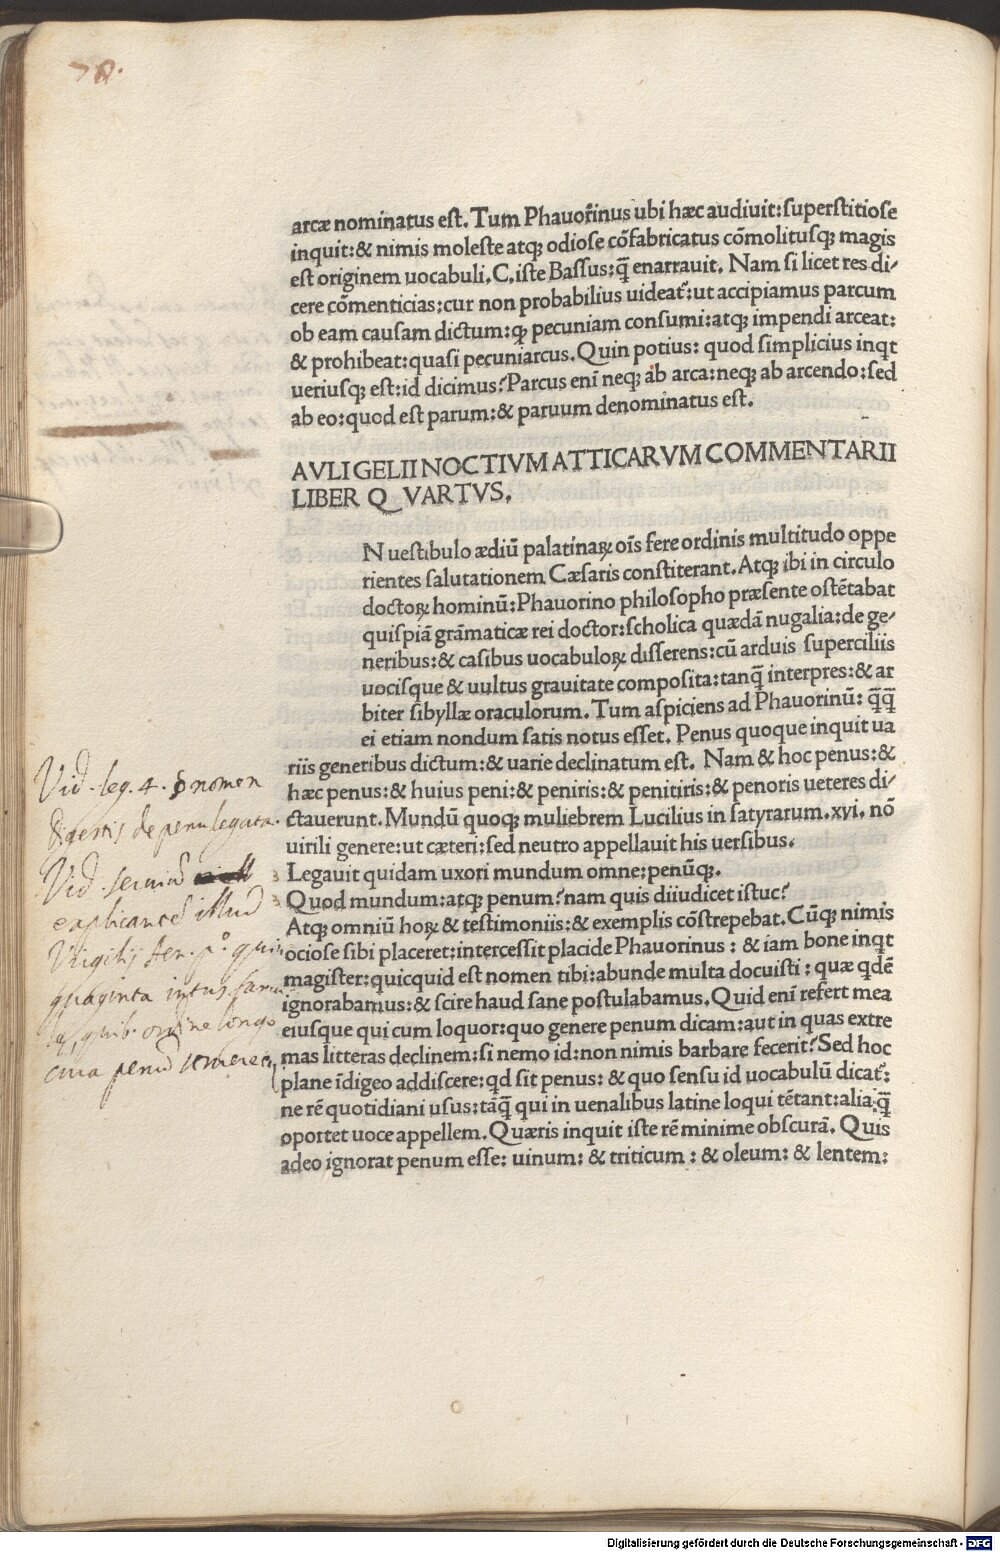 78.
arcæ nominatus est. Tum Phauorinus ubi hæc audiuit: superstitiose
inquit: & nimis moleste atqꝫ odiose cōfabricatus cōmolitusqꝫ magis
est originem uocabuli. C. iste Bassus: q̄ enarrauit. Nam si licet res di/
cere cōmenticias: cur non probabilius uideat᷑: ut accipiamus parcum
ob eam causam dictum: ꝙ pecuniam consumi: atqꝫ impendi arceat:
& prohibeat: quasi pecuniarcus. Quin potius: quod simplicius inqt
ueriusqꝫ est: id dicimus? Parcus eni neqꝫ ab arca: neqꝫ ab arcendo: sed
ab eo: quod est parum: & paruum denominatus est.
AVLI GELII NOCTIVM ATTICARVM COMMENTARII
LIBER QVARTVS.
N uestibulo ædiū palatinaꝝ oīs fere ordinis multitudo oppe
rientes salutationem Cæsaris constiterant. Atqꝫ ibi in circulo
doctoꝝ hominū: Phauorino philosopho præsente ostētabat
quispiā grāmaticæ rei doctor: scholica quædā nugalia: de ge/
neribus: & casibus uocabuloꝝ disserens: cū arduis superciliis
uocisque & uultus grauitate composita: tanq̄ interpres: & ar
biter sibyllæ oraculorum. Tum aspiciens ad Phauorinū: q̄q̄
ei etiam nondum satis notus esset. Penus quoque inquit ua
riis generibus dictum: & uarie declinatum est. Nam & hoc penus: &
hæc penus: & huius peni: & peniris: & penitiris: & penoris ueteres di/
ctauerunt. Mundū quoqꝫ muliebrem Lucilius in satyrarum. xyi. nō
uirili genere: ut cæteri: sed neutro appellauit his uersibus.
Legauit quidam uxori mundum omne: penūqꝫ.
Quod mundum: atqꝫ penum? nam quis diiudicet istuc?
Atqꝫ omniū hoꝝ & testimoniis: & exemplis cōstrepebat. Cūqꝫ nimis
ociose sibi placeret: intercessit placide Phauorinus: & iam bone inqt
magister: quicquid est nomen tibi: abunde multa docuisti: quæ qdē
ignorabamus: & scire haud sane postulabamus. Quid enī refert mea
eiusque qui cum loquor: quo genere penum dicam: aut in quas extre
mas litteras declinem: si nemo id: non nimis barbare fecerit? Sed hoc
plane īdigeo addiscere: qd sit penus: & quo sensu id uocabulū dicat᷑:
ne rē quotidiani usus: tāq̄ qui in uenalibus latine loqui tētant: alia: q̄
oportet uoce appellem. Quæris inquit iste rē minime obscurā. Quis
adeo ignorat penum esse: uinum: & triticum: & oleum: & lentem:
Vid. leg. 4. § nomen
digestis de penu legata.
Vid. seruiū
explicantē illud
Virgilij Aen. p.º quin
quaginta intus famu
læ, quib. ordine longo
cura penū struere
Digitalisierung gefördert durch die Deutsche Forschungsgemeinschaft - DFG